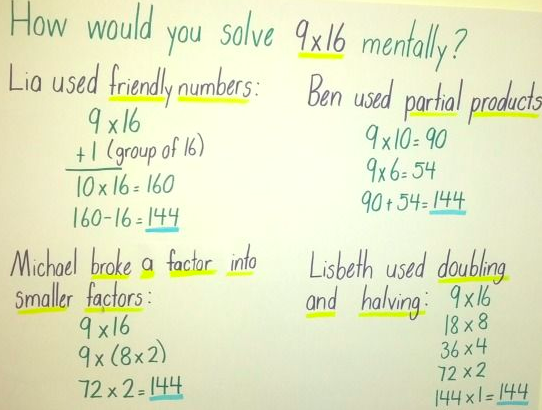 How would you solve 9x16 mentally?
Lia used friendly numbers:
9 x16
+1 (group of 16)
10 x 16 = 160
160-16=144
Ben used partial products
9 x 10= 90
9x6= 54
90+54=144
Michael broke a factor into
smaller factors:
9 x16
9x (8x2)
72 x 2=144
Lisbeth used doubling
and halving: 9x16
18 x 8
36 x 4
72 x 2
144 x 1= 144